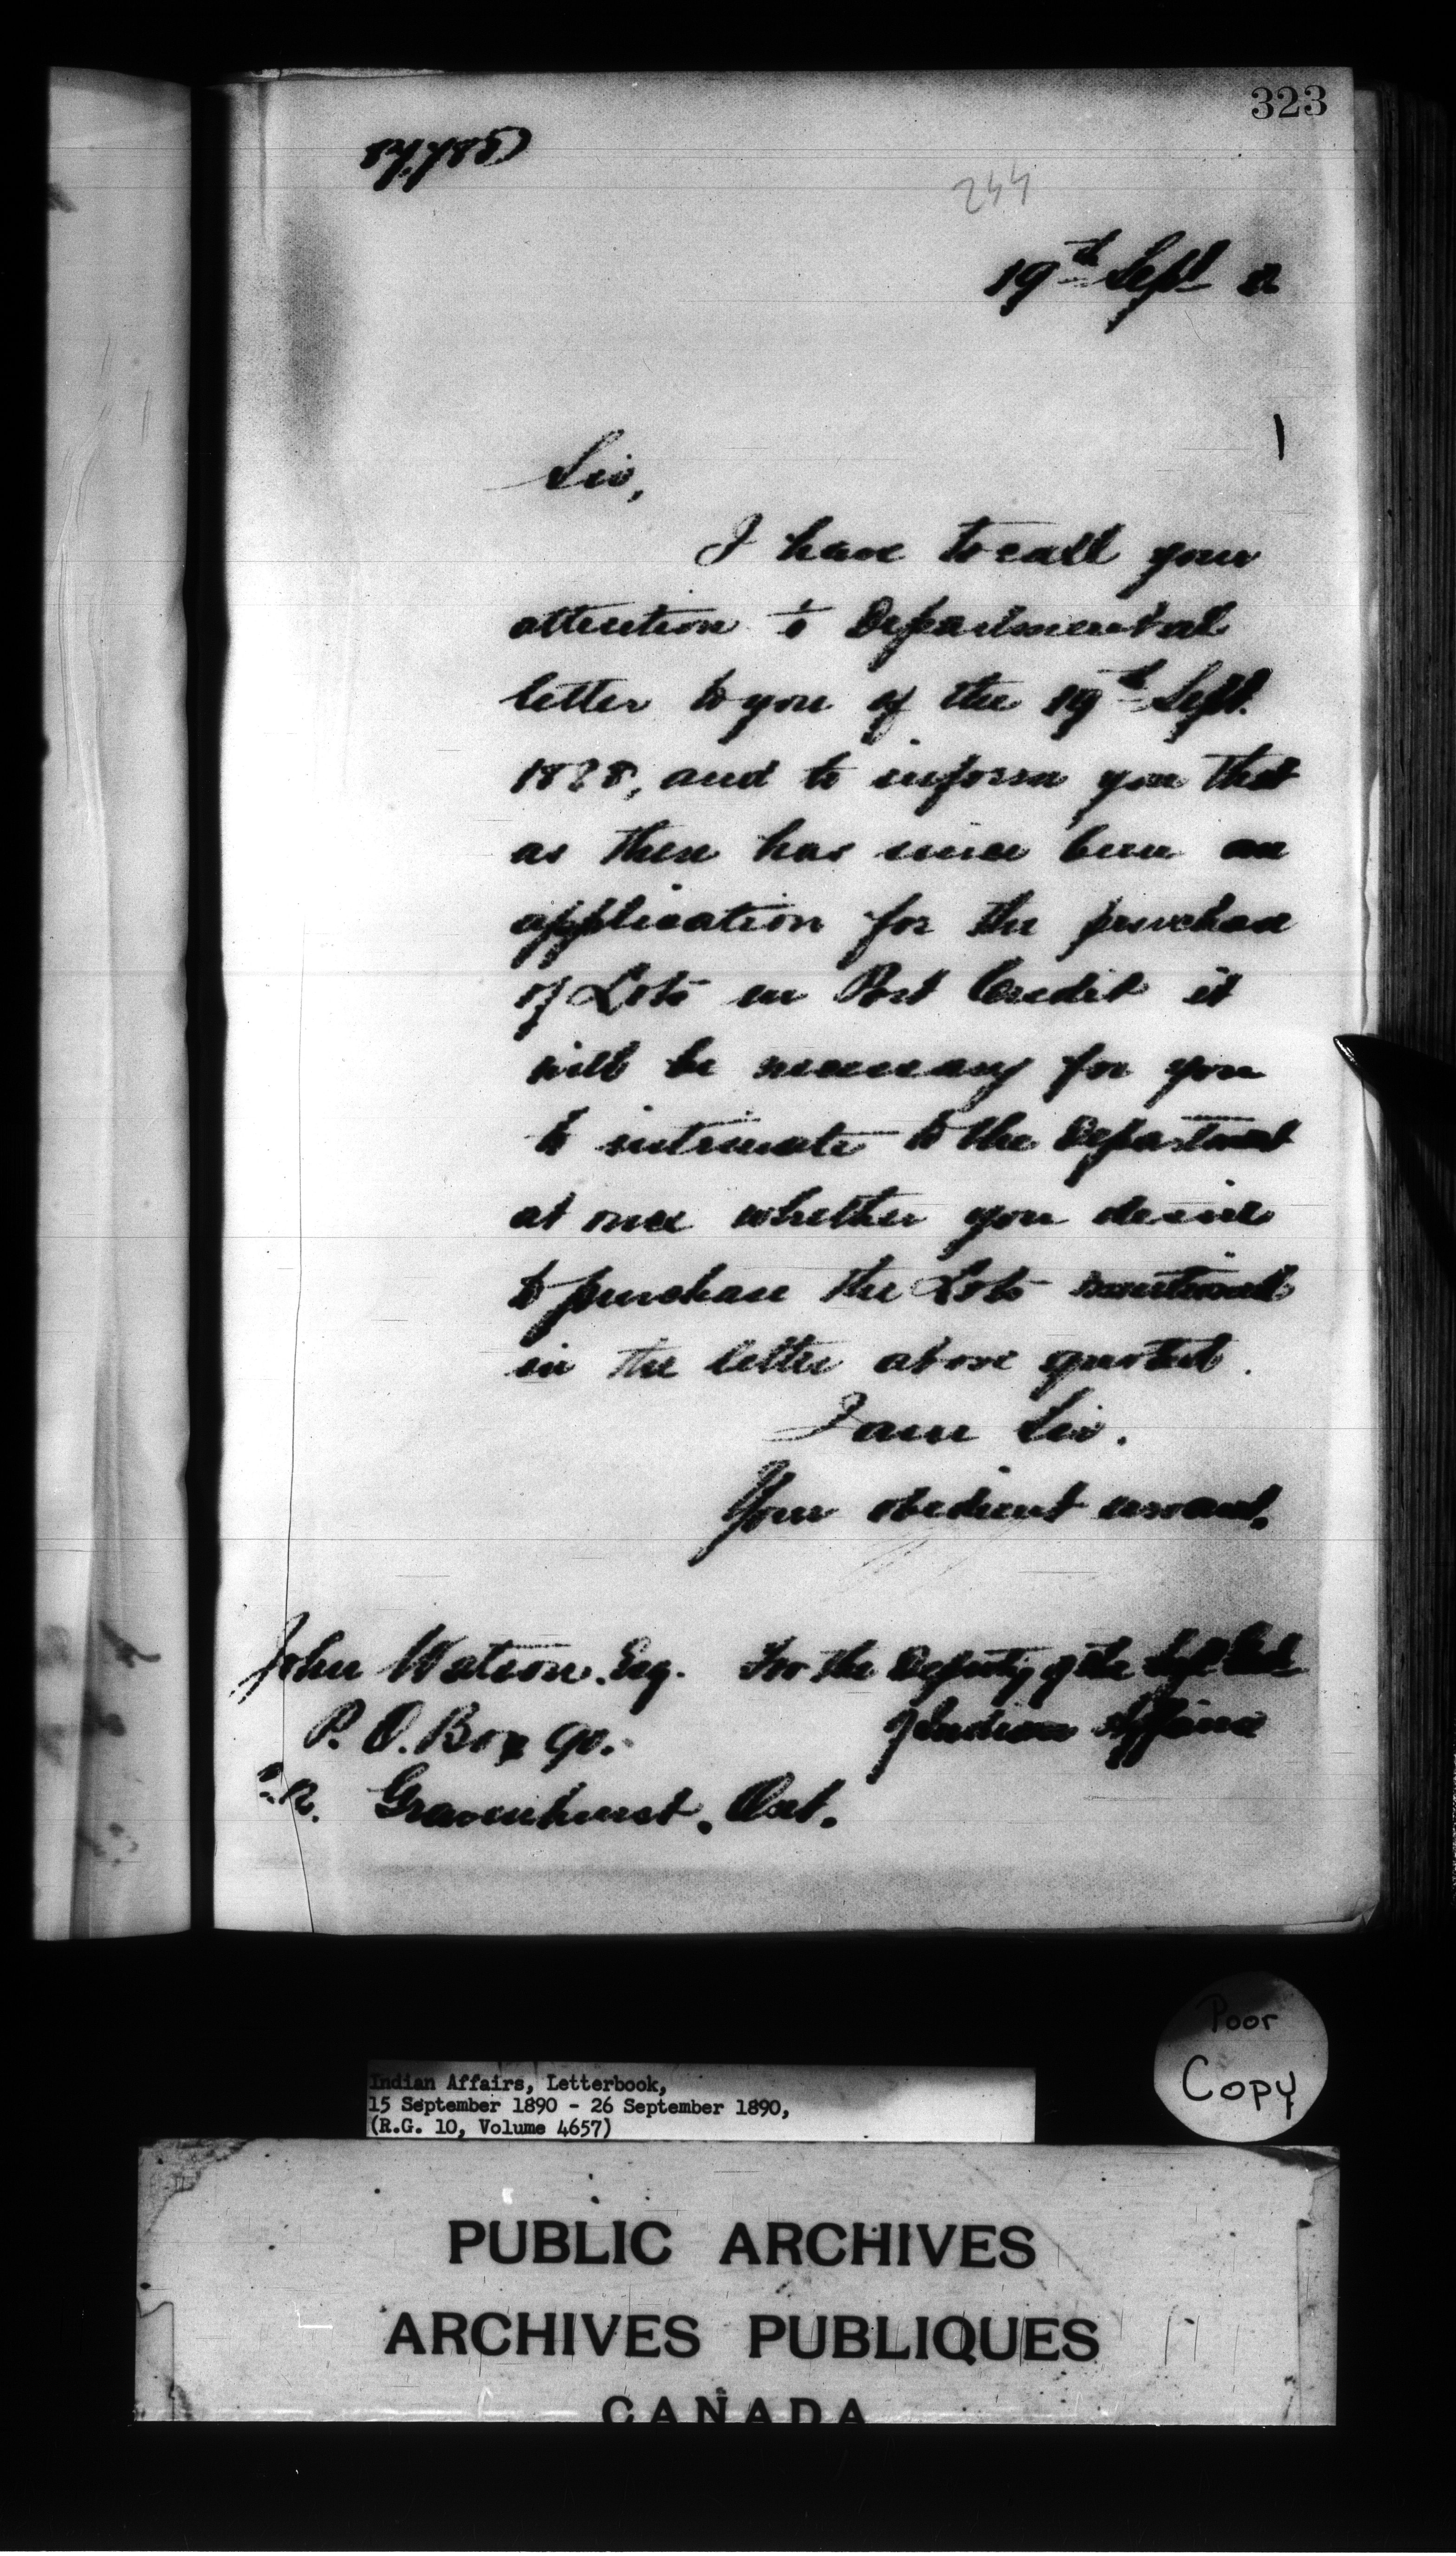 323
244
19th Sept
Sir,
I have to call your
attention to Departmental
letter to you of the 19th Sept.
1888, and to inform you that
as there has since been an
application for the purchase
of Lots in Port Credit it
will be necessary for you
to intimate to the Department
at once whether you desire
to purchase the Lots mentioned
in the letter above quoted.
I am Sir.
Your obedient servant.
John Watson. Esq. For the Deputy of the Supt Genl
P. O. Box 90. of Indian Affairs
Gravenhurst. Ont.
Poor
Copy
Indian Affairs, Letterbook,
15 September 1890 - 26 September 1890,
(R.G. 10, Volume 4657)
PUBLIC ARCHIVES
ARCHIVES PUBLIQUES
CANADA